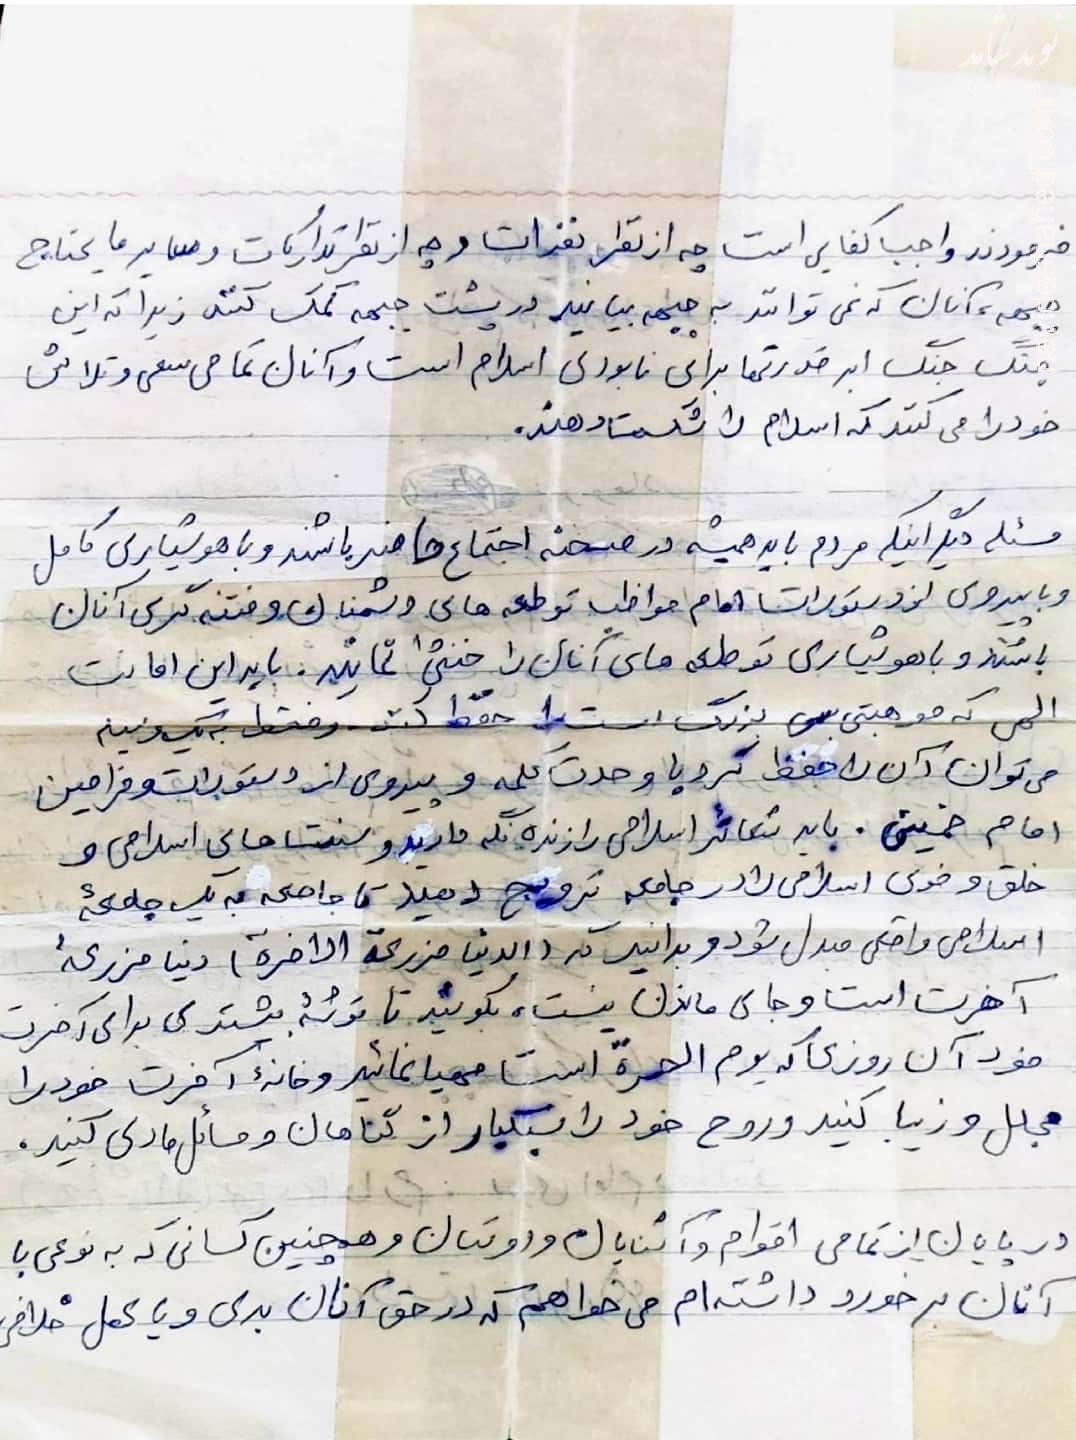 نوید شاهد
فرمودند واجب کفایی است چه از نظر نفرات و چه از نظر تدارکات و سایر مایحتاج
جبهه، آنان که نمی توانند به جبهه بیایند در پشت جبهه کمک کنند زیرا که این
جنگ جنگ ابر قدرتها برای نابودی اسلام است و آنان تمامی سعی و تلاش
خود را می کنند که اسلام را شکست دهند.
مسئله دیگر اینکه مردم باید همیشه در صحنه اجتماع حاضر باشند و با هوشیاری کامل
و با پیروی از دستورات امام مواظب توطعه های دشمنان و فتنه گری آنان
باشند و با هوشیاری توطعه های آنان را خنثی نمایند. باید این امانت
الهی که موهبتی بس بزرگ است را حفظ کند و فقط به یک وسیله
می توان آن را حفظ کرد با وحدت کلمه و پیروی از دستورات و فرامین
امام خمینی. باید شعائر اسلامی را زنده نگه دارید و سنت های اسلامی و
خلق و خوی اسلامی را در جامعه ترویج دهید تا جامعه به یک جامعهٔ
اسلامی واقعی مبدل شود و بدانید که (الدنیا مزرعة الاخرة) دنیا مزرعهٔ
آخرت است و جای ماندن نیست، بکوشید تا توشهٔ بیشتری برای آخرت
خود آن روزی که یوم الحسرة است مهیا نمائید و خانهٔ آخرت خود را
مجلل و زیبا کنید و روح خود را سبکبار از گناهان و مسائل مادی کنید.
در پایان از تمامی اقوام و آشنایان و دوستان و همچنین کسانی که به نوعی با
آنان برخورد داشته ام می خواهم که در حق آنان بدی و یا عمل خلافی